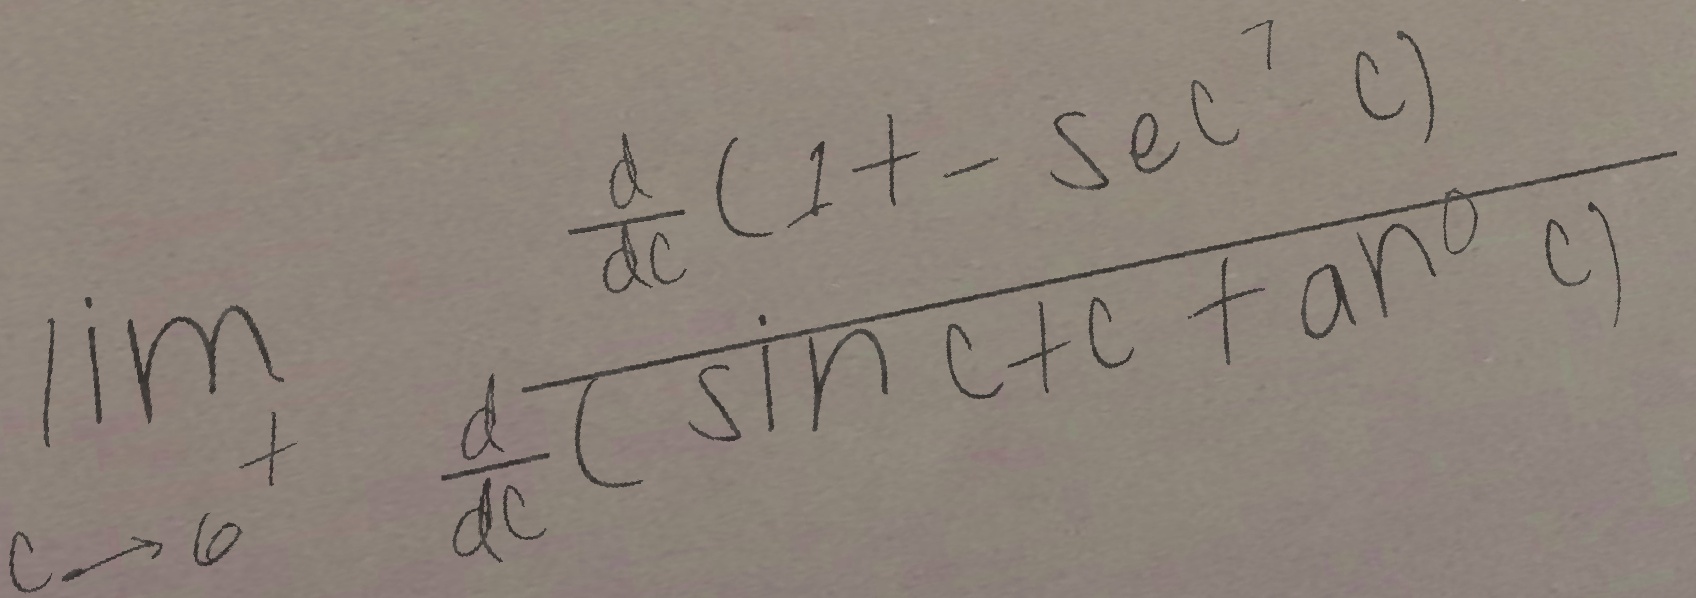 \lim_{c \to 0^+} \frac{\frac{d}{dc}(1 + - \sec^7 c)}{\frac{d}{dc}(\sin c + c + \tan^0 c)}